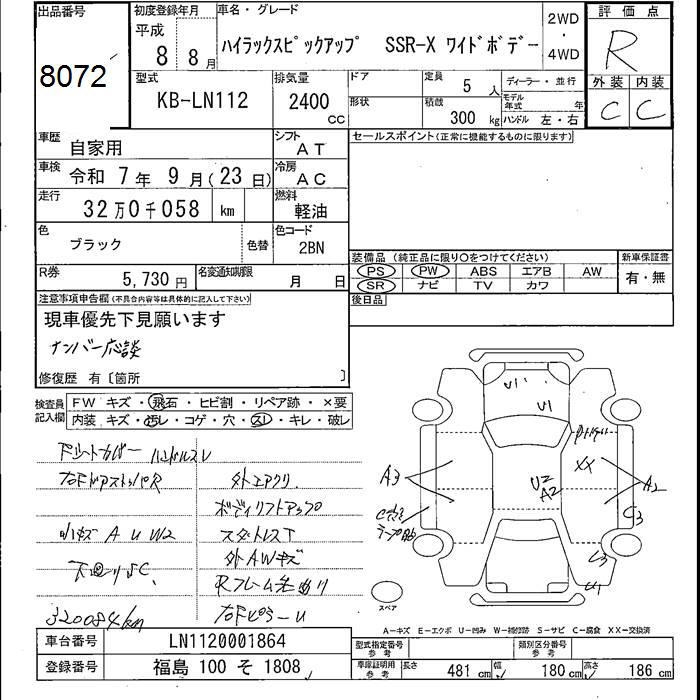 出品番号
8072
初度登録年月
平成
8 8月
車名・グレード
ハイラックスピックアップ SSR-X ワイドボデー
2WD
・
4WD
評価点
R
外装 内装
C C
型式
KB-LN112
排気量
2400
CC
ドア
形状
定員
5 人
積載
300 kg
ディーラー・並行
モデル年式 年
ハンドル 左・右
車歴
自家用
シフト
AT
車検
令和 7年 9月(23日)
冷房
AC
走行
32万0千058 km
燃料
軽油
色
ブラック
色替
色コード
2BN
R券
5,730円
名変通知期限
月 日
セールスポイント(正常に機能するものに限ります)
装備品 (純正品に限り〇をつけてください)
PS PW ABS エアB AW
SR ナビ TV カワ
新車保証書
有・無
後日品
注意事項申告欄(不具合内容等は具体的に記入して下さい)
現車優先下見願います
ナンバー応談
修復歴 有〔箇所 〕
検査員記入欄
FW キズ・飛石・ヒビ割・リペア跡・×要
内装 キズ・汚レ・コゲ・穴・スレ・キレ・破レ
ハンドルスレ
右FドアストッパR
外エアクリ
ボディリフトアップ
小キズ A U W2
スタッドレスT
外AWキズ
下回りSC
320084km
右FピラーU
U1
U1
XX
A3
U2
A2
A2
C3
C3
U1
スペア
A−キズ E−エクボ U−凹み W−補修跡 S−サビ C−腐食 XX−交換済
車台番号
LN1120001864
登録番号
福島 100 そ 1808
型式指定番号
参考
類別区分番号
参考
車庫証明用
参考
長さ 481 cm
幅 180 cm
高さ 186 cm